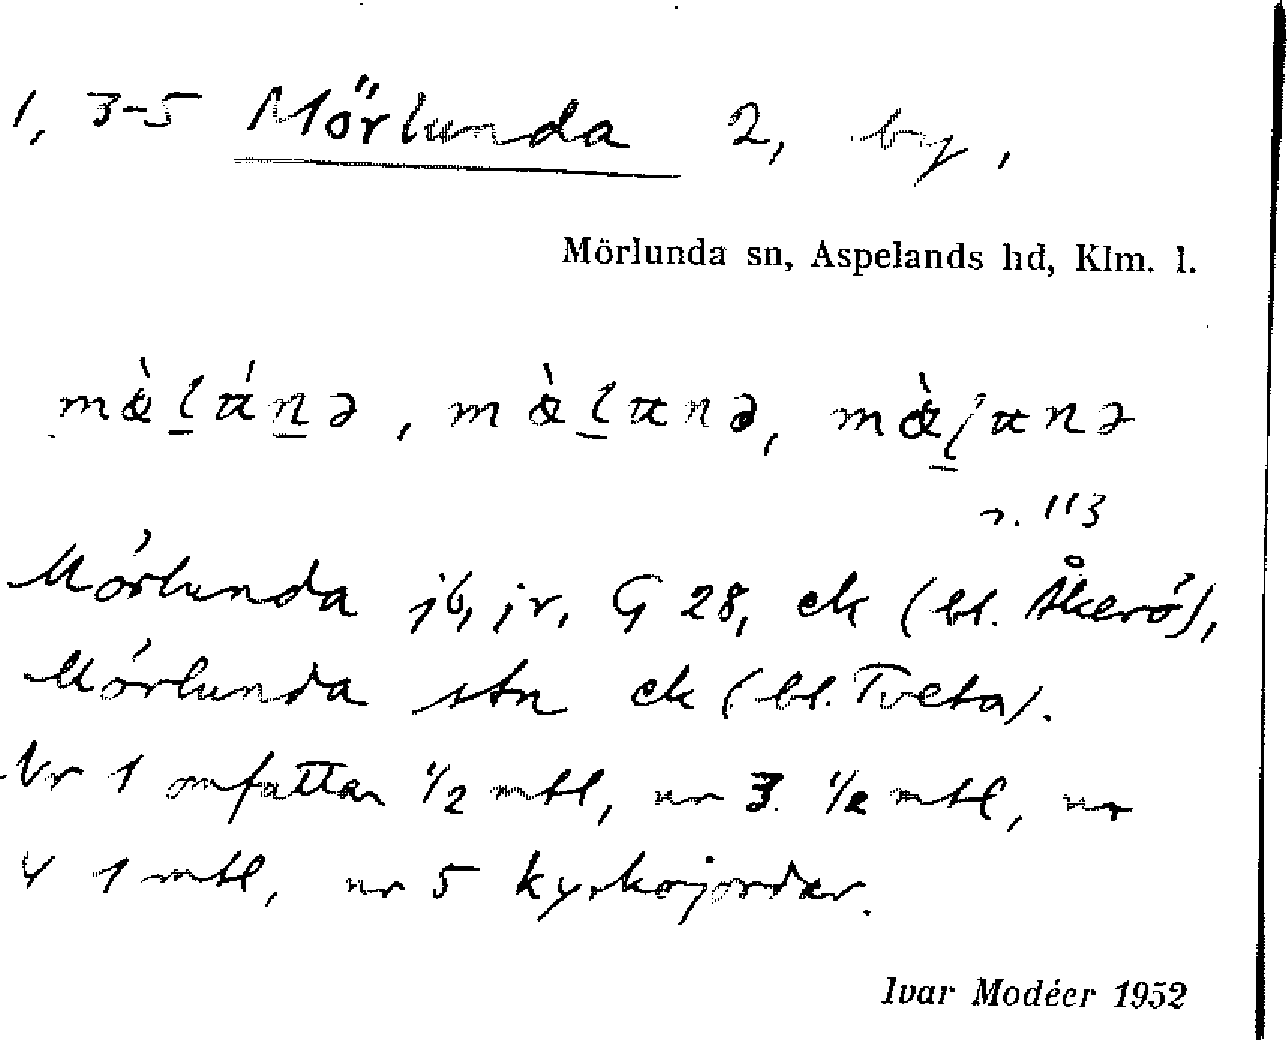 1, 3-5 Mörlunda 2, by,
Mörlunda sn, Aspelands hd, Klm. l.
r. 113
Mörlunda jb, jr, G 28, ek (bl. Åkerö),
Mörlunda stn ek (bl. Tveta).
Nr 1 omfattar 1/2 mtl, nr 3 1/2 mtl, nr
4 1 mtl, nr 5 kyrkojordar.
Ivar Modéer 1952